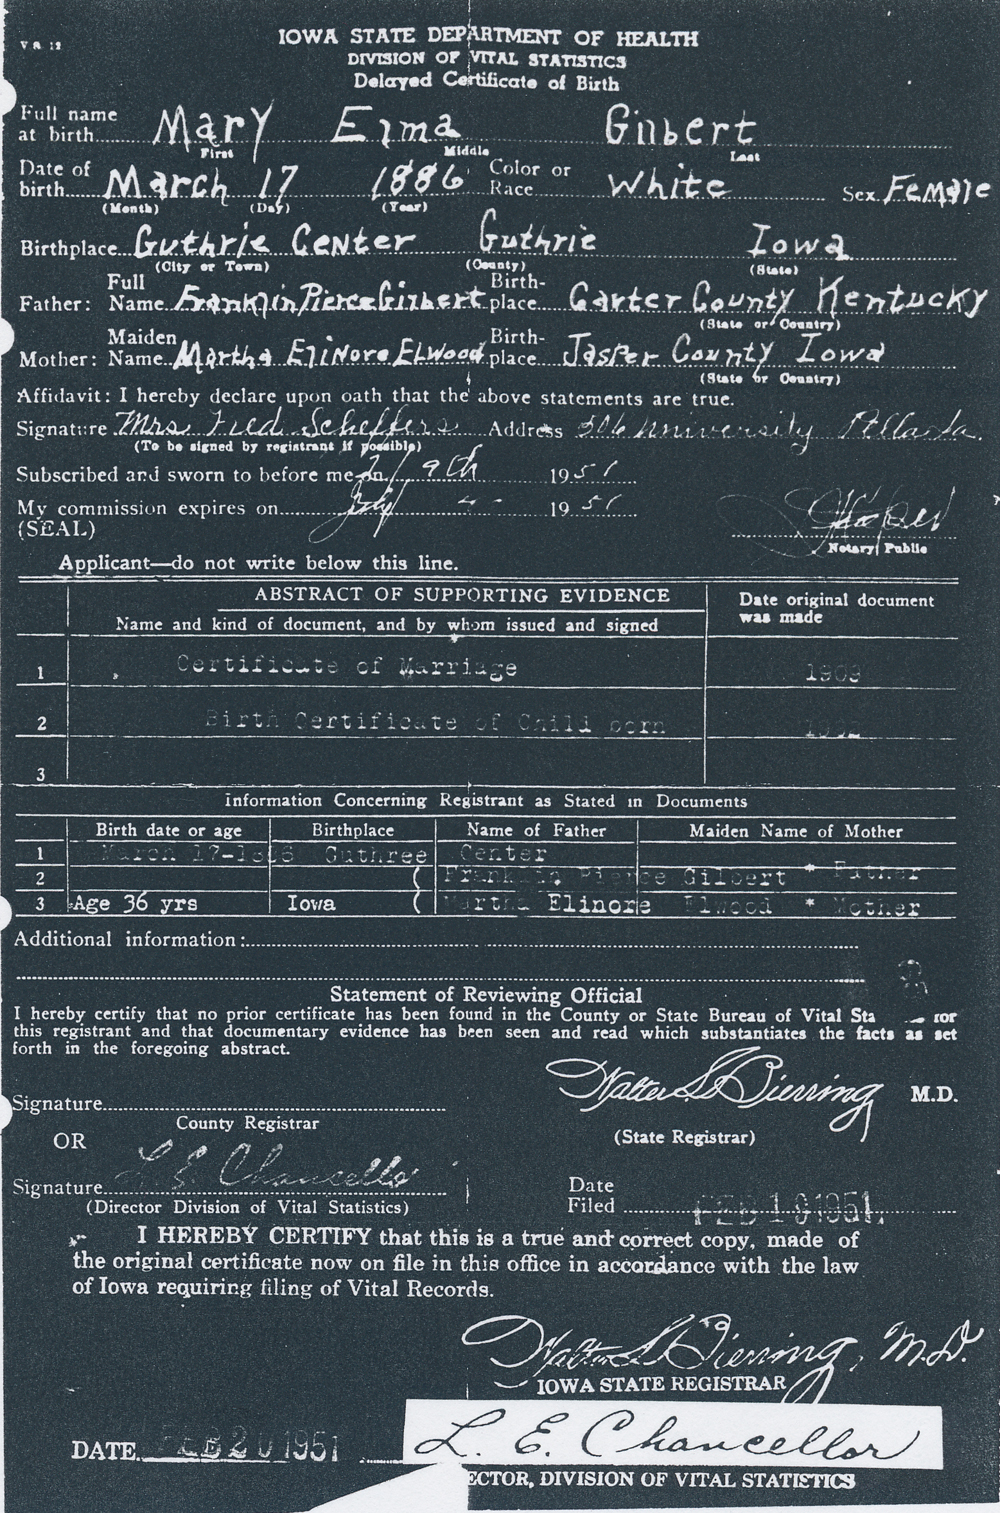 V R 12
IOWA STATE DEPARTMENT OF HEALTH
DIVISION OF VITAL STATISTICS
Delayed Certificate of Birth
Full name at birth Mary Erma Gilbert
First Middle Last
Date of birth March 17 1886 Color or Race White Sex Female
(Month) (Day) (Year)
Birthplace Guthrie Center Guthrie Iowa
(City or Town) (County) (State)
Father: Full Name Franklin Pierce Gilbert Birth-place Carter County Kentucky
(State or Country)
Mother: Maiden Name Martha Elinore Elwood Birth-place Jasper County Iowa
(State or Country)
Affidavit: I hereby declare upon oath that the above statements are true.
Signature Mrs Fred Scheffers Address 306 University Pella Ia.
(To be signed by registrant if possible)
Subscribed and sworn to before me on 9th 1951
My commission expires on July 4 - 1951
(SEAL)
Notary Public
Applicant—do not write below this line.
ABSTRACT OF SUPPORTING EVIDENCE
Name and kind of document, and by whom issued and signed
Date original document was made
1 Certificate of Marriage 1909
2 Birth Certificate of Child born
3
Information Concerning Registrant as Stated in Documents
Birth date or age Birthplace Name of Father Maiden Name of Mother
1 March 17-1886 Guthree Center
2 ( Franklin Pierce Gilbert * Father
3 Age 36 yrs Iowa ( Martha Elinore Elwood * Mother
Additional information:
Statement of Reviewing Official
I hereby certify that no prior certificate has been found in the County or State Bureau of Vital Sta for
this registrant and that documentary evidence has been seen and read which substantiates the facts as set
forth in the foregoing abstract.
Signature
County Registrar
Walter L Bierring M.D.
(State Registrar)
OR
Signature L. E. Chancellor
(Director Division of Vital Statistics)
Date Filed FEB 19 1951
I HEREBY CERTIFY that this is a true and correct copy, made of
the original certificate now on file in this office in accordance with the law
of Iowa requiring filing of Vital Records.
Walter L Bierring, M.D.
IOWA STATE REGISTRAR
DATE FEB 20 1951
L. E. Chancellor
ECTOR, DIVISION OF VITAL STATISTICS